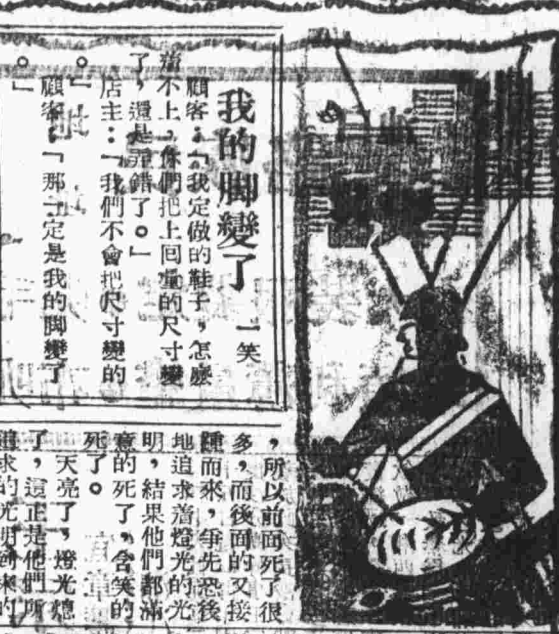 我的脚變了
一笑
顧客：「我定做的鞋子，怎麽
不上，你們把上回量的尺寸變
了，還是弄錯了。」
店主：「我們不會把尺寸變的
。」
顧客：「那一定是我的脚變了
。」
，所以前面死了很
多，而後面的又接
踵而來，爭先恐後
地追求着燈光的光
明，結果他們都滿
意的死了，含笑的
死了。
天亮了，燈光熄
了，這正是他們所
追求的光明到來的